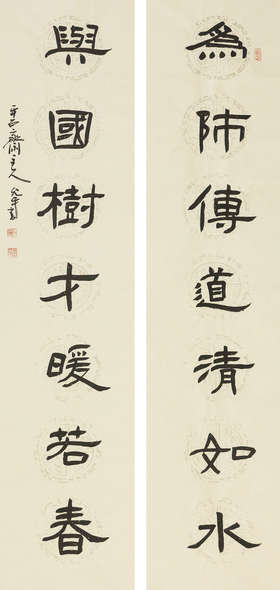 為師傳道清如水
與國樹才暖若春